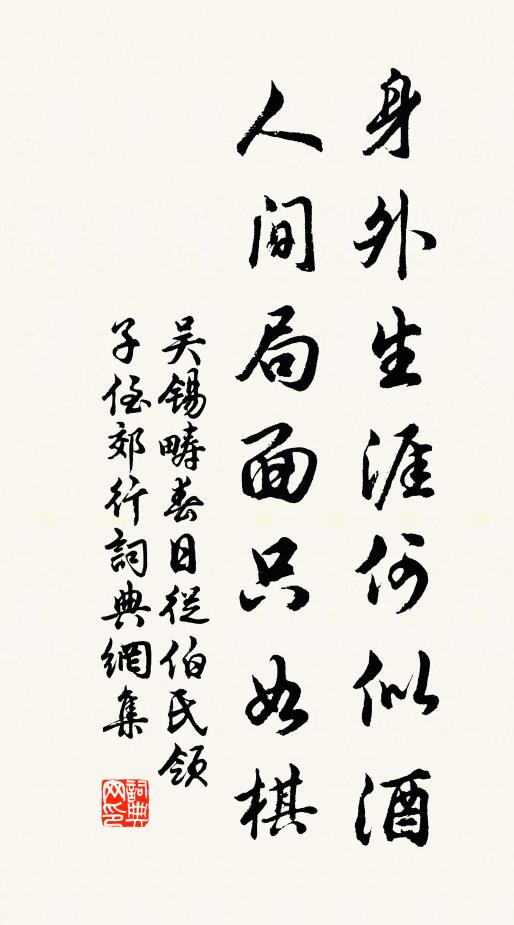 身外生涯何似酒
人间局面只如棋
吴锡畴春日從伯氏领
子侄郊行詞典網集
詞典
网印